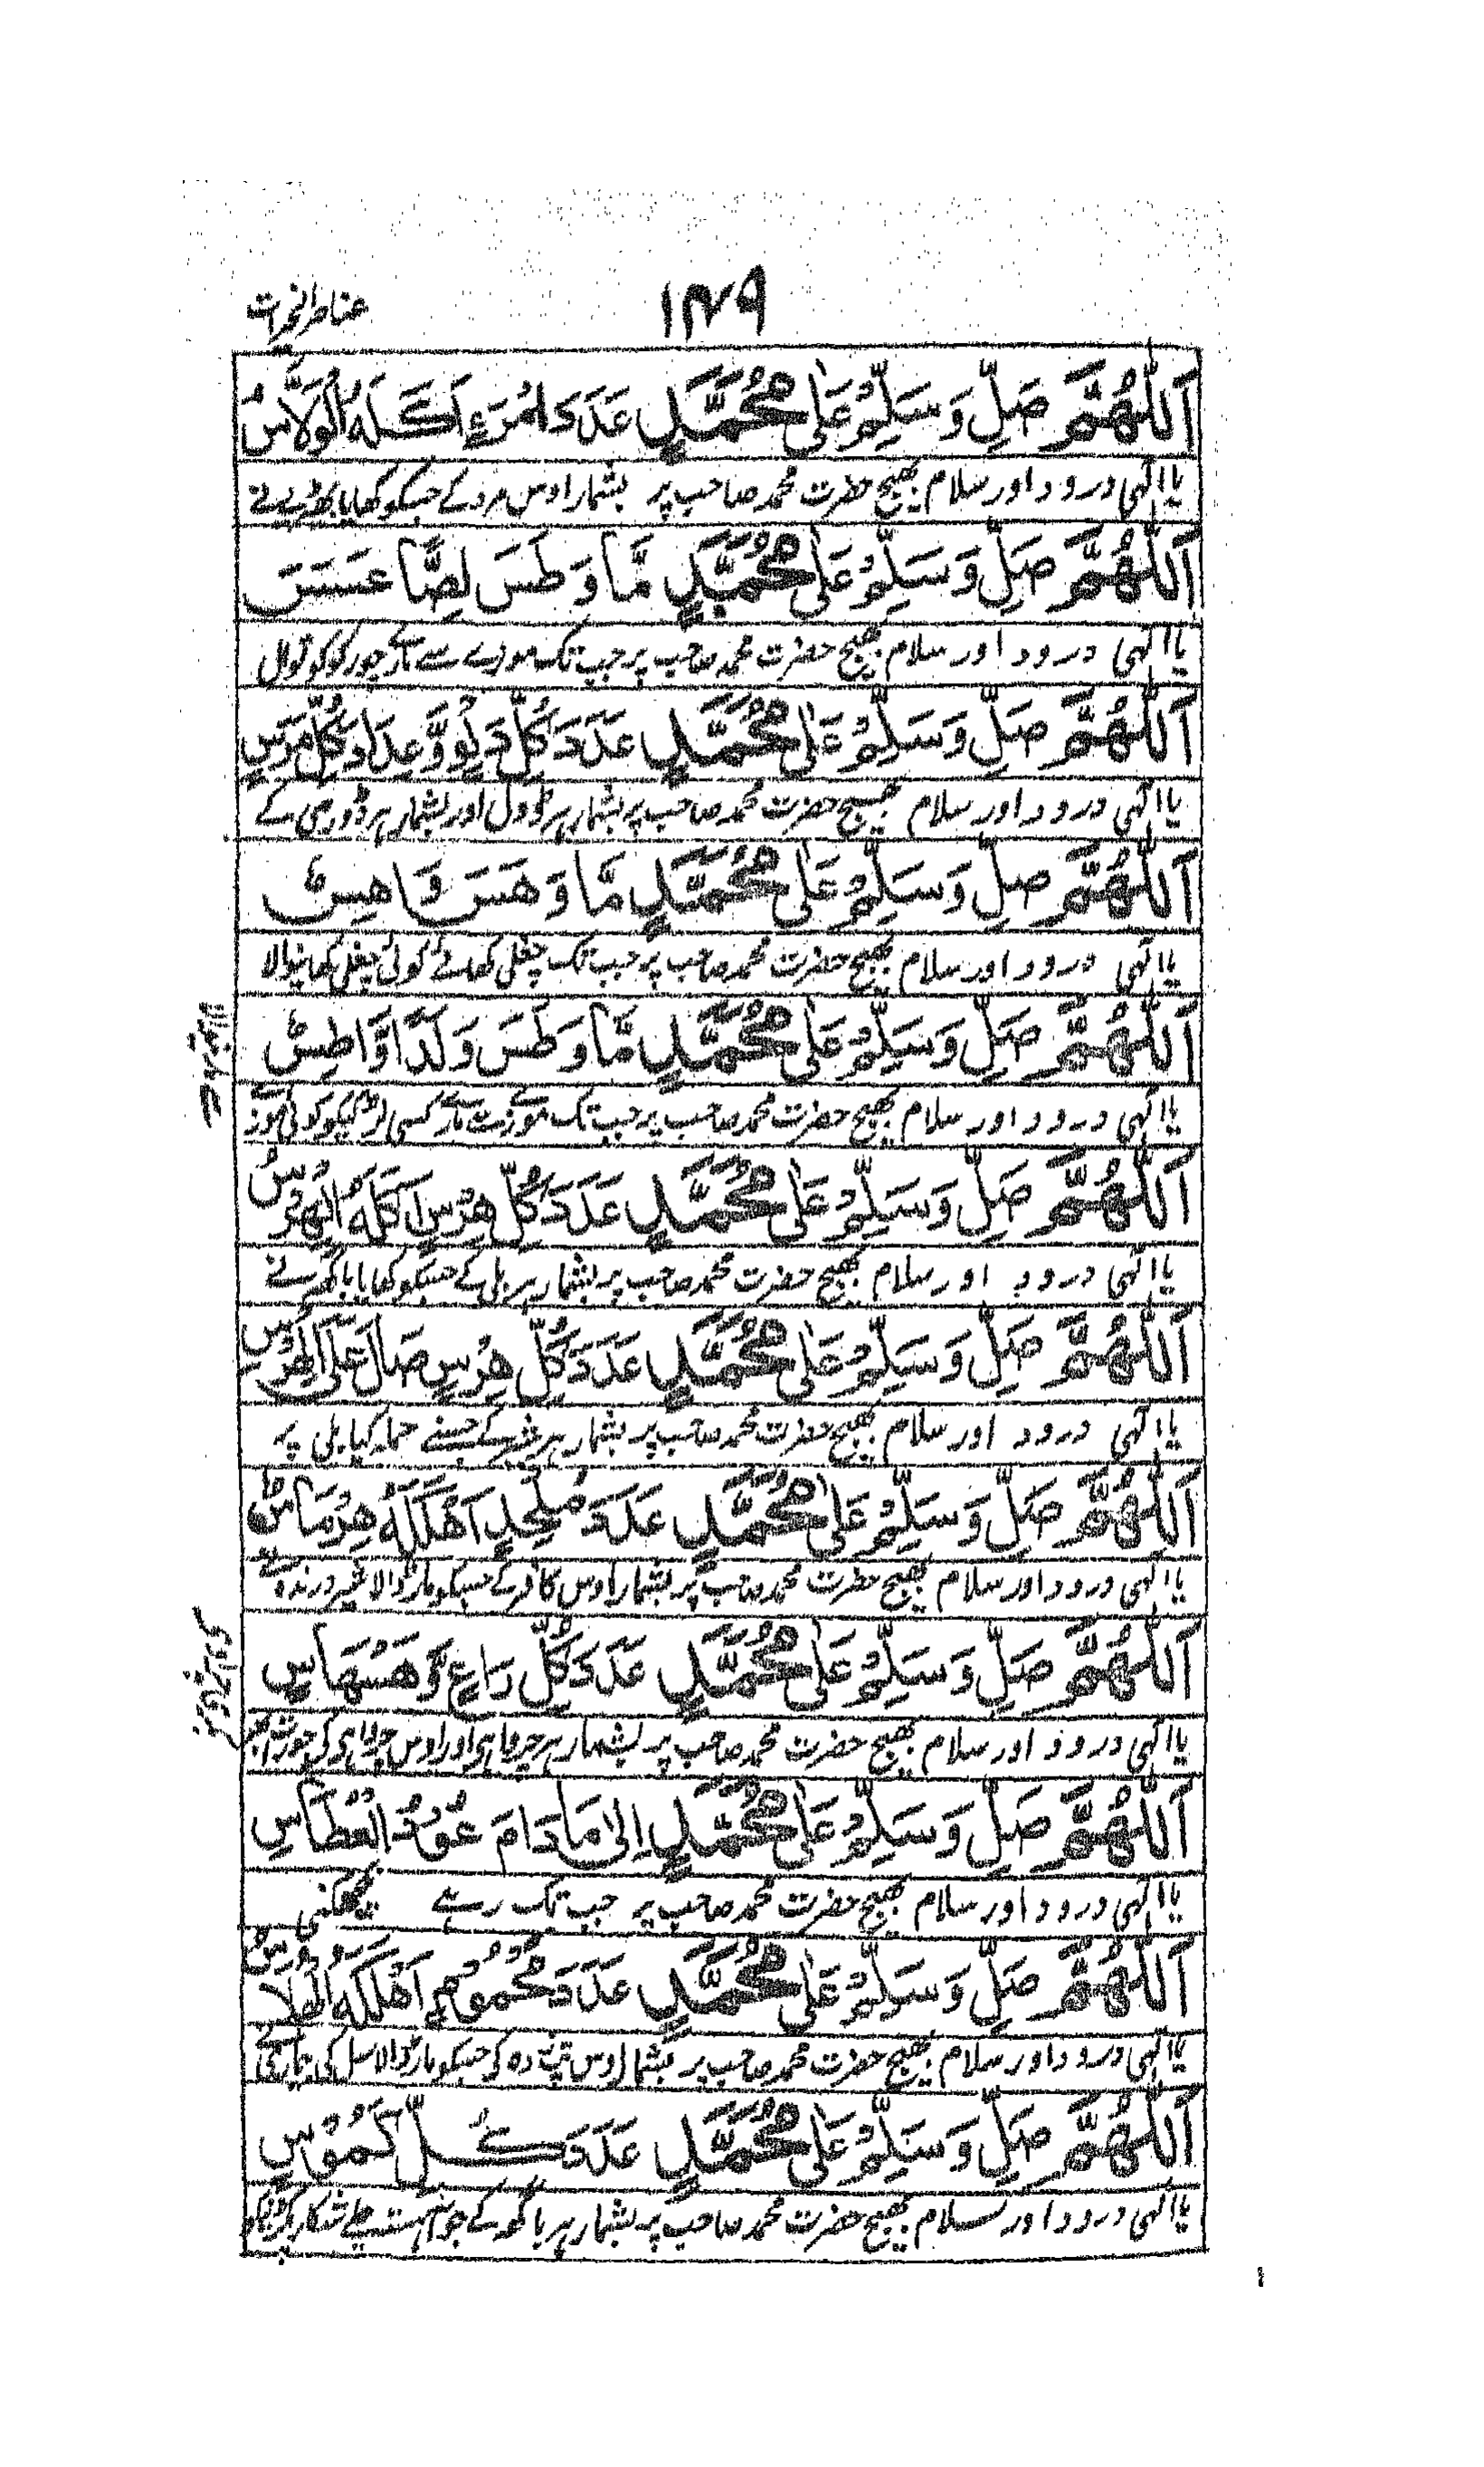 ۱۲۷۹
اَللّٰهُمَّ صَلِّ وَسَلِّمْ عَلٰى مُحَمَّدٍ عَدَدَ امْرَءٍ اَكَلَهُ الْوَلَّاسُ
یا الٰہی درود اور سلام بھیج حضرت محمد صاحب پر بشمار اوس مرد کے جسکو کھایا بھیڑیے نے
اَللّٰهُمَّ صَلِّ وَسَلِّمْ عَلٰى مُحَمَّدٍ مَّا وَطَسَ لِصًّا عَسَسٌ
یا الٰہی درود اور سلام بھیج حضرت محمد صاحب پر جب تک موزے سے مارے چور کو کوتوال
اَللّٰهُمَّ صَلِّ وَسَلِّمْ عَلٰى مُحَمَّدٍ عَدَدَ كُلِّ دَلْوٍ وَّعِدَادَ كُلِّ مَرَسٍ
یا الٰہی درود اور سلام بھیج حضرت محمد صاحب پر بشمار ہر ڈول اور بشمار ہر ڈوری کے
اَللّٰهُمَّ صَلِّ وَسَلِّمْ عَلٰى مُحَمَّدٍ مَّا وَهَسَ وَاهِسٌ
یا الٰہی درود اور سلام بھیج حضرت محمد صاحب پر جب تک چغلی کھائے کوئی چغلی کھانیوالا
اَللّٰهُمَّ صَلِّ وَسَلِّمْ عَلٰى مُحَمَّدٍ مَّا وَطَسَ وَلَدًا وَّاطِسٌ
یا الٰہی درود اور سلام بھیج حضرت محمد صاحب پر جب تک موزے سے مارے کسی لڑکیکو کوئی
اَللّٰهُمَّ صَلِّ وَسَلِّمْ عَلٰى مُحَمَّدٍ عَدَدَ كُلِّ هِرٍّ اَكَلَهُ
یا الٰہی درود اور سلام بھیج حضرت محمد صاحب پر بشمار ہر بلی کے جسکو کھایا باگھ نے
اَللّٰهُمَّ صَلِّ وَسَلِّمْ عَلٰى مُحَمَّدٍ عَدَدَ كُلِّ هِرْسٍ صَالَ عَلَى الْهِرْسِ
یا الٰہی درود اور سلام بھیج حضرت محمد صاحب پر بشمار ہر شیر کے جسنے حملہ کیا بلی پر
اَللّٰهُمَّ صَلِّ وَسَلِّمْ عَلٰى مُحَمَّدٍ عَدَدَ مُلْحِدٍ اَهْلَكَهُ هِرْمَاسٌ
یا الٰہی درود اور سلام بھیج حضرت محمد صاحب پر بشمار اوس کافر کے جسکو مار ڈالا شیر درندہ نے
اَللّٰهُمَّ صَلِّ وَسَلِّمْ عَلٰى مُحَمَّدٍ عَدَدَ كُلِّ رَاعٍ وَّهَسْهَاسٍ
یا الٰہی درود اور سلام بھیج حضرت محمد صاحب پر بشمار ہر چرواہے اور اوس چرواہی کی جو
اَللّٰهُمَّ صَلِّ وَسَلِّمْ عَلٰى مُحَمَّدٍ اِلٰى مَا دَامَ الْعُطَاسِ
یا الٰہی درود اور سلام بھیج حضرت محمد صاحب پر جب تک رہے
اَللّٰهُمَّ صَلِّ وَسَلِّمْ عَلٰى مُحَمَّدٍ عَدَدَ مَحْمُوْمٍ اَهْلَكَهُ الْهُلَاسُ
یا الٰہی درود اور سلام بھیج حضرت محمد صاحب پر بشمار اوس تپ زدہ کی جسکو مار ڈالا سل کی بیماری نے
اَللّٰهُمَّ صَلِّ وَسَلِّمْ عَلٰى مُحَمَّدٍ عَدَدَ كُلِّ هَمُوْسٍ
یا الٰہی درود اور سلام بھیج حضرت محمد صاحب پر بشمار ہر باگھ کے جو آہستہ چلے شکار